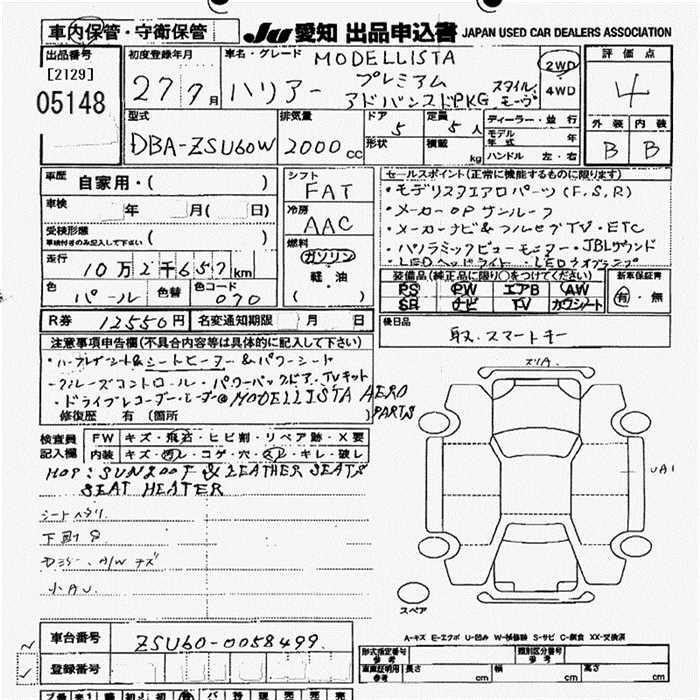 車内保管・守衛保管
JU 愛知 出品申込書 JAPAN USED CAR DEALERS ASSOCIATION
出品番号
[2129]
05148
初度登録年月
27 7月
車名・グレード MODELLISTA
ハリアー プレミアム
アドバンスドPKG
スタイル モーヴ
2WD
4WD
評価点
4
外装 内装
B B
型式
DBA-ZSU60W
排気量
2000 cc
ドア 5
形状
定員 5人
積載 kg
ディーラー・並行
モデル年式 年
ハンドル 左・右
車歴 自家用・( )
車検 年 月( 日)
受検形態
車検付きのみ記入して下さい ( )
走行 10万2千657km
色 パール 色替 色コード 070
R券 12550円 名変通知期限 月 日
シフト
FAT
冷房
AAC
燃料
ガソリン
軽・油
( )
セールスポイント(正常に機能するものに限ります)
・モデリスタエアロパーツ(F,S,R)
・メーカーOPサンルーフ
・メーカーナビ&フルセグTV・ETC
・パノラミックビューモニター・JBLサウンド
・LEDヘッドライト
装備品(純正品に限り○をつけてください)
PS PW エアB AW
SR ナビ TV カワシート
新車保証書
有・無
後日品
取・スマートキー
注意事項申告欄(不具合内容等は具体的に記入して下さい)
・ハーフレザーシート&シートヒーター&パワーシート
・クルーズコントロール・パワーバックドア・TVキット
・ドライブレコーダー MODELLISTA AERO PARTS
修復歴 有 (箇所 )
検査員記入欄
FW キズ・飛石・ヒビ割・リペア跡・X要
内装 キズ・汚レ・コゲ・穴・スレ・キレ・破レ
MOP: SUNROOF & LEATHER SEATS
SEAT HEATER
シートヘタリ
下回り
A/Wキズ
小AU
ズリA
UA1
スペア
A-キズ E-エクボ U-凹み W-補修跡 S-サビ C-腐食 XX-交換済
車台番号 ZSU60-0058499
登録番号
型式指定番号 参考
類別区分番号 参考
車庫証明用 参考 長さ cm 幅 cm 高さ cm